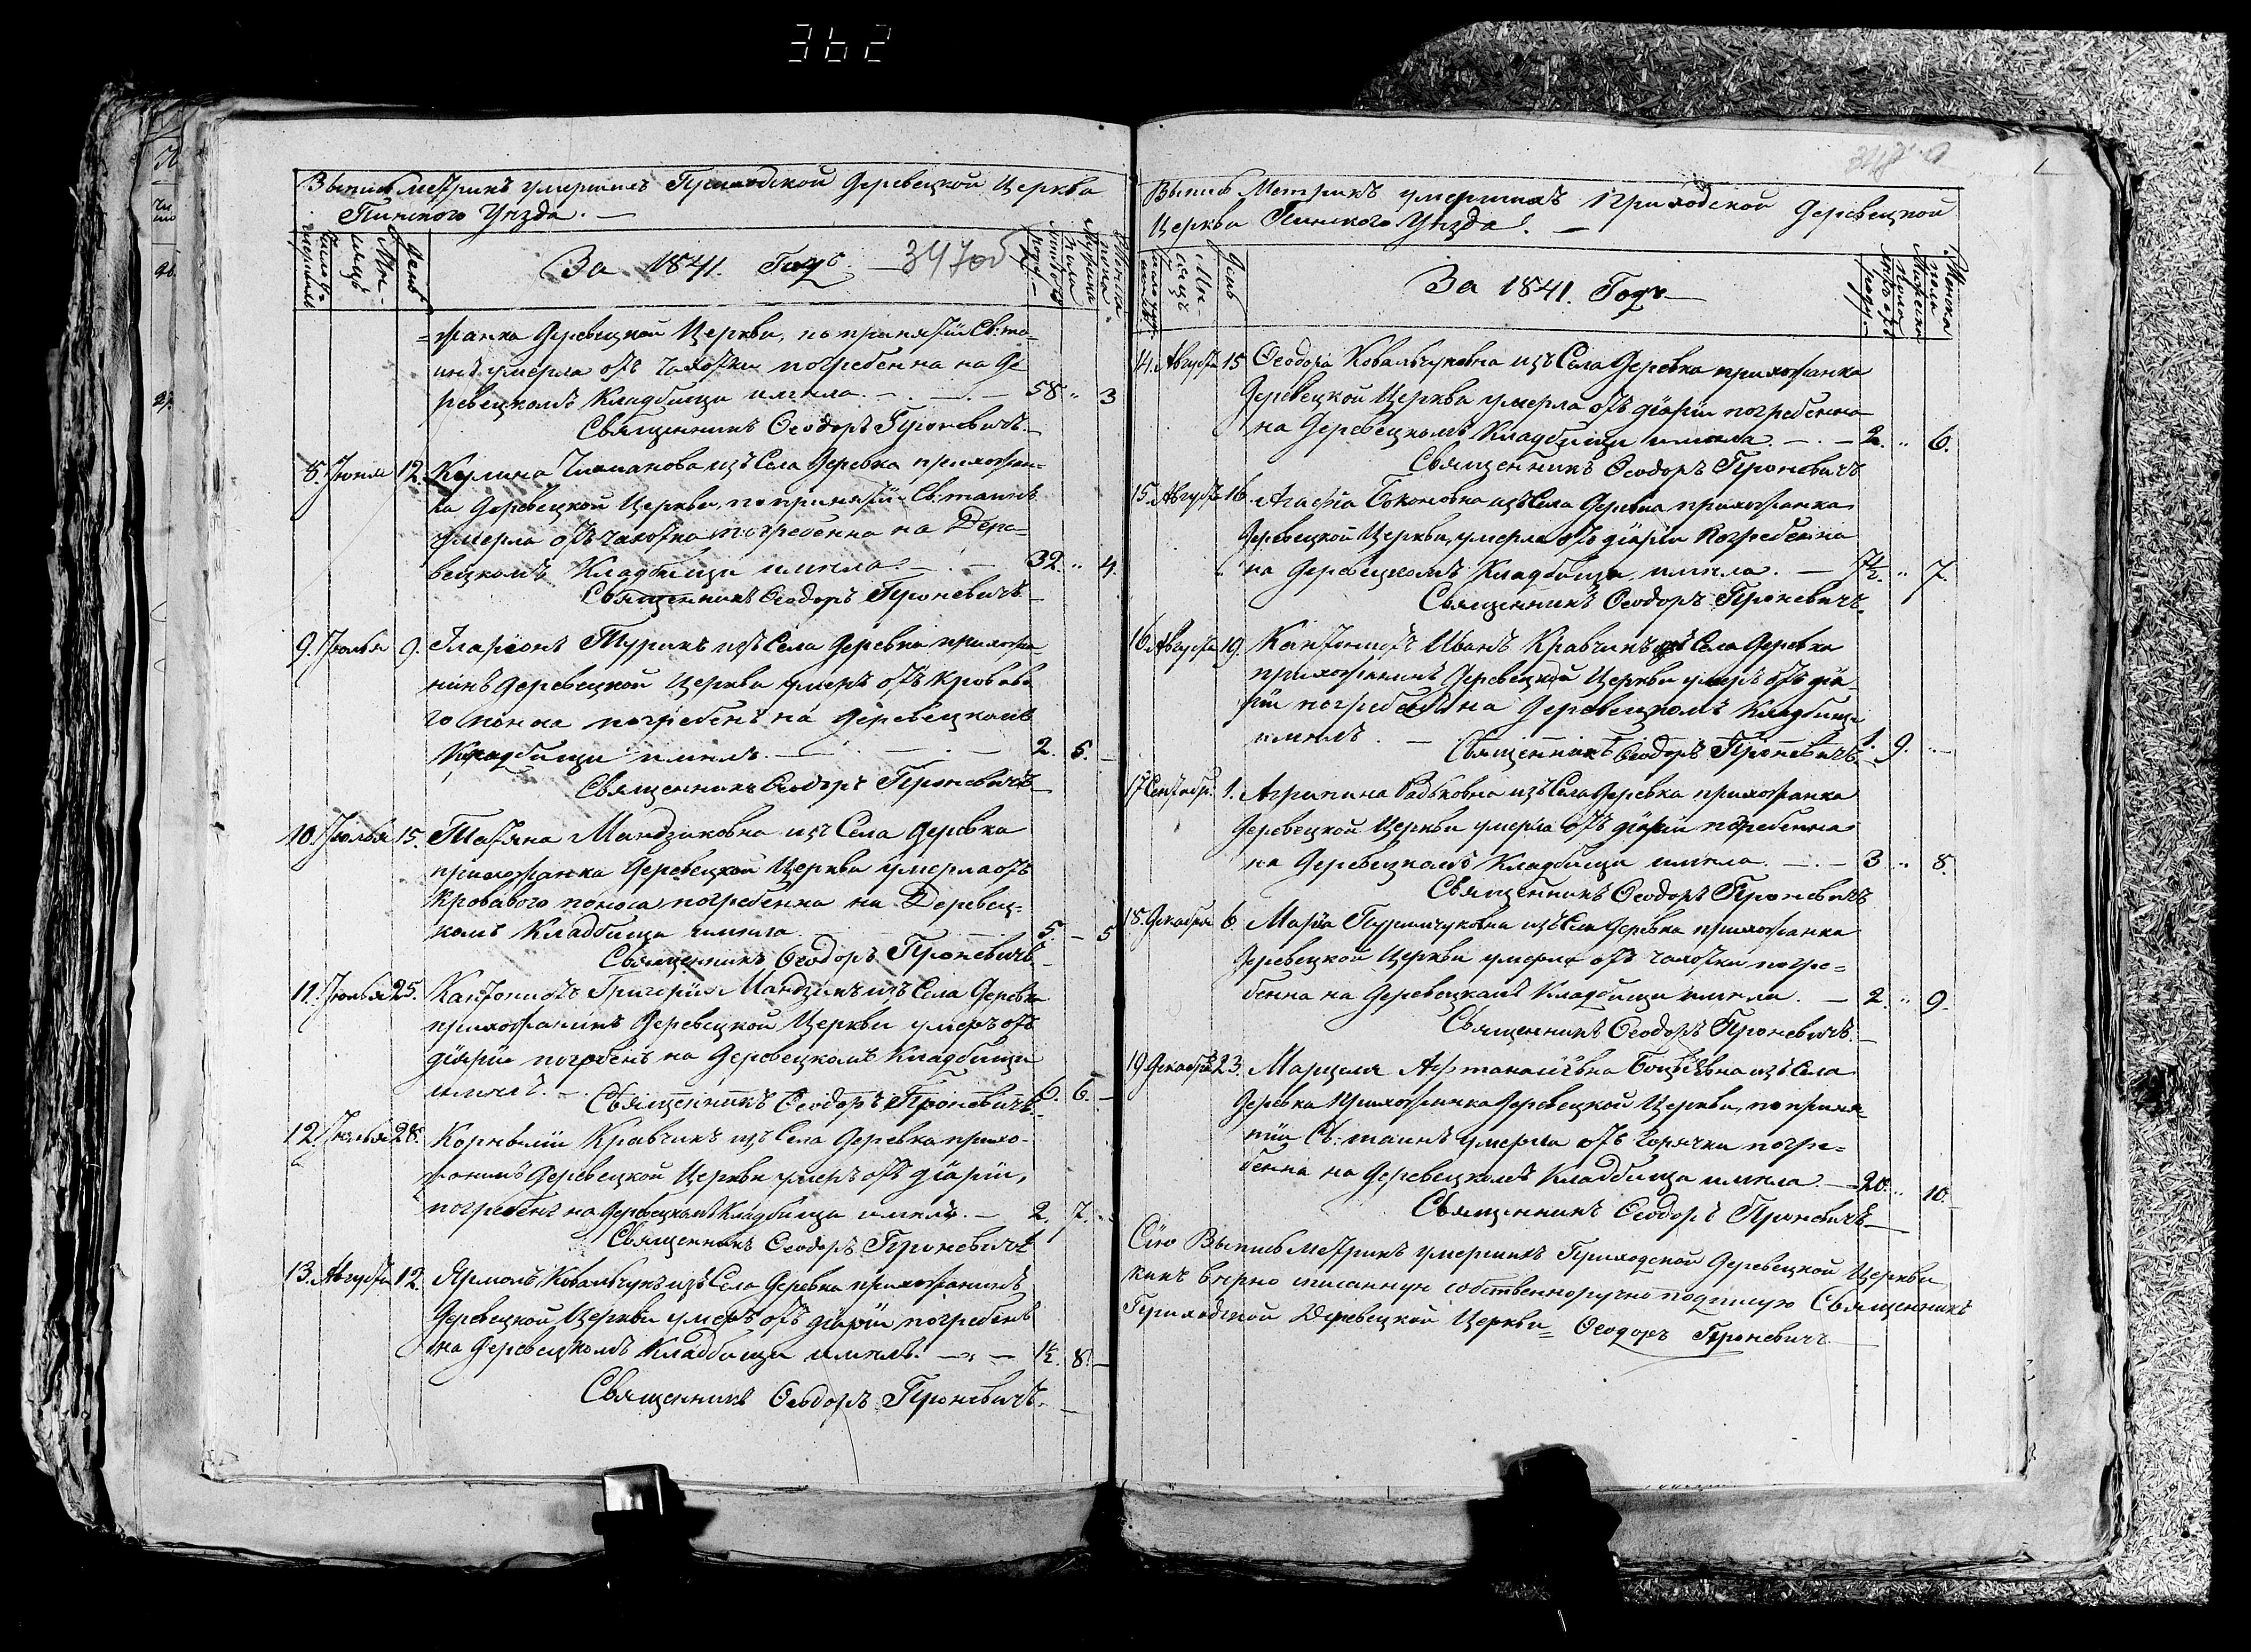 362
Выпись Метрикъ умершихъ Приходской Деревецкой Церкви
Пинского Уезда. —
число умершихъ
Месяцъ
День
За 1841. Годъ — 347об
=жанка Деревецкой Церкви, по принятіи Св: та-
инъ умерла отъ чахотки погребенна на Де
ревецкомъ Кладбищи имела. — . — 58 " 3
Священникъ Ѳеодоръ Проневичъ. —
8. Іюня 12. Кулина из Села Деревка прихожан-
ка Деревецкой Церкви, по принятіи Св: таинъ
умерла отъ чахотка погребенна на Дере-
вецкомъ Кладбищи имела — . — 32. " 4.
Священникъ Ѳеодоръ Проневичъ —
9. Іюлья 9. Иларіонъ Турикъ изъ Села Деревка прихожа
нинъ Деревецкой Церкви умеръ отъ кроваво
го поноса погребенъ на Деревецкомъ
Кладбищи имелъ. — 2. 5. —
Священникъ Ѳеодоръ Проневичъ —
10. Іюлья 15. Татяна Мандзиковна изъ Села Деревка
прихожанка Деревецкой Церкви умерла отъ
Кровавого поноса погребенна на Деревец-
комъ Кладбищи имела 5. — 5
Священникъ Ѳеодоръ Проневичъ. —
11. Іюлья 25. Кантонистъ Григорій Мандзикъ изъ Села Деревка
прихожанинъ Деревецкой Церкви умеръ отъ
діяріи погребенъ на Деревецкомъ Кладбищи
имелъ. — 6. 6. —
Священникъ Ѳеодоръ Проневичъ. —
12. Іюлья 28. Корнилій Кравчикъ изъ Села Деревка прихо-
жанинъ Деревецкой Церкви умеръ отъ діаріи,
погребенъ на Деревецкомъ Кладбищи имелъ. — 2. 7.
Священникъ Ѳеодоръ Проневичъ
13. Августа 12. Ярмолъ Ковальчукъ изъ Села Деревка прихожанинъ
Деревецкой Церкви умеръ отъ діаріи погребенъ
на Деревецкомъ Кладбищи имелъ. — " — 1½. 8. —
Священникъ Ѳеодоръ Проневичъ. —
Выпись Метрикъ умершихъ Приходской Деревецкой
Церкви Пинского Уезда. —
Месяцъ
День
За 1841. Годъ —
14. Августа 15 Ѳеодора Ковальчуковна изъ Села Деревка прихожанка
Деревецкой Церкви умерла отъ діаріи погребенна
на Деревецкомъ Кладбищи имела — . — 2. " 6.
Священникъ Ѳеодоръ Проневичъ
15. Августа 16. Агафія изъ Села Деревка прихожанка
Деревецкой Церкви, умерла отъ діаріи погребенна
на Деревецкомъ Кладбищи, имела. — ½. " 7.
Священникъ Ѳеодоръ Проневичъ.
16. Августа 19. Кантонистъ Иванъ Кравчикъ изъ Села Деревка
прихожанинъ Деревецкой Церкви умеръ отъ діа-
ріи погребенъ на Деревецкомъ Кладбищи
имелъ. — 1. 9. —
Священникъ Ѳеодоръ Проневичъ. —
17 Сентабр. 1. Агрипина Радковна изъ Села Деревка прихожанка
Деревецкой Церкви умерла отъ діаріи погребенна
на Деревецкомъ Кладбищи имела. — . — 3 " 8.
Священникъ Ѳеодоръ Проневичъ
18. Декабря 6 Марія изъ Села Деревка прихожанка
Деревецкой Церкви умерла отъ чахотки погре-
бенна на Деревецкомъ Кладбищи имела. — 2. " 9.
Священникъ Ѳеодоръ Проневичъ. —
19. Декабря 23. Марцеля изъ Села
Деревка прихожанка Деревецкой Церкви, по приня-
тіи Св: таинъ умерла отъ горячки погре-
бенна на Деревецкомъ Кладбищи имела. — 20. " 10. —
Священникъ Ѳеодоръ Проневичъ —
Сію Выпись Метрикъ умершихъ Приходской Деревецкой Церкви
какъ верно списанную собственноручно подписую Священникъ
Приходской Деревецкой Церкви = Ѳеодоръ Проневичъ